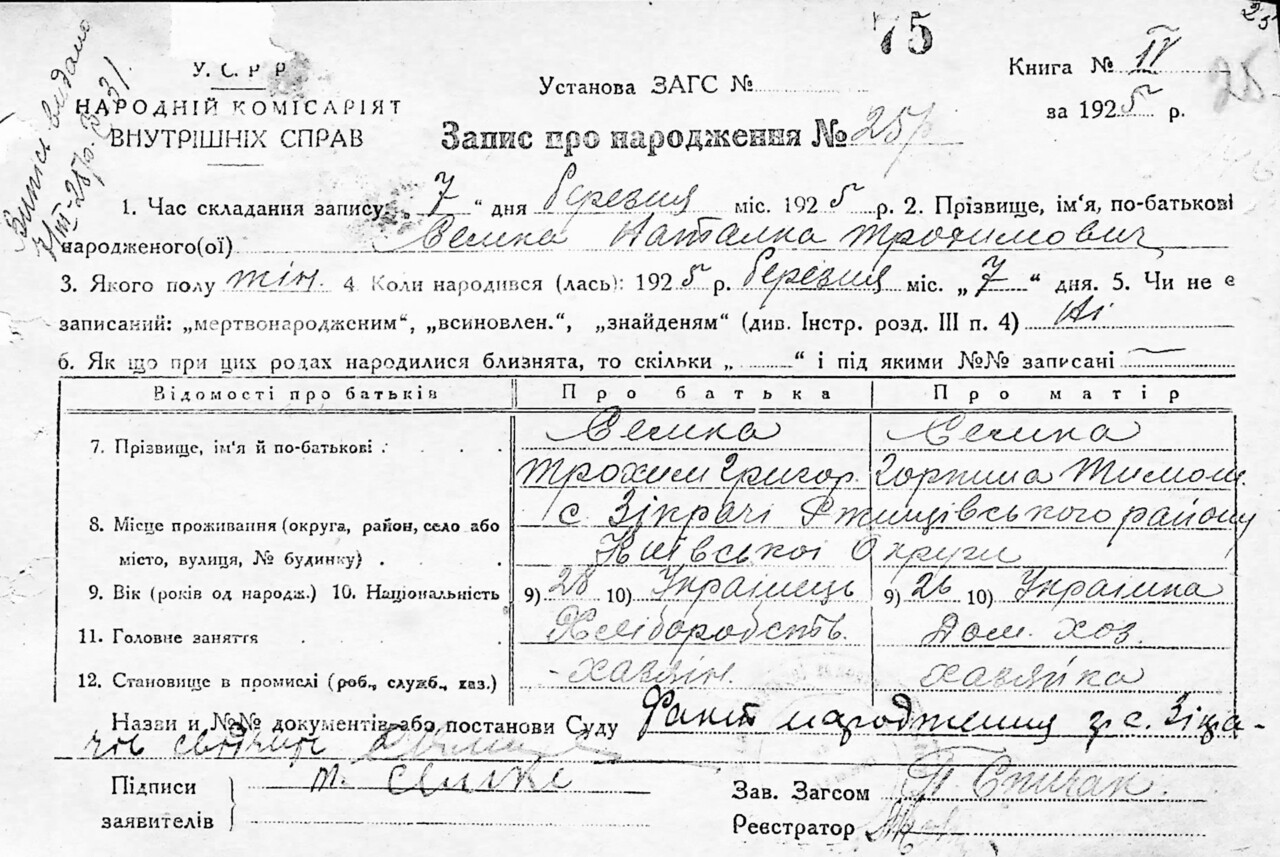 75
25
28
Запис видано
7/III-28 р.
У. С. Р Р
НАРОДНІЙ КОМІСАРІЯТ
ВНУТРІШНІХ СПРАВ
Установа ЗАГС №
Книга № IV
за 1925 р.
Запис про народження № 25
1. Час складання запису „7“ дня березня міс. 1925 р. 2. Прізвище, ім‘я, по-батькові
народженого(ої) Наталка Трохимович
3. Якого полу жін. 4. Коли народився (лась): 1925 р. березня міс. „7“ дня. 5. Чи не є
записаний: „мертвонародженим“, „всиновлен.“, „знайденям“ (див. Інстр. розд. III п. 4) Ні
6. Як що при цих родах народилися близнята, то скільки „ “ і під якими №№ записані —
Відомості про батьків Про батька Про матір
7. Прізвище, ім‘я й по-батькові :
Трохим Григор. Горпина Тимош.
8. Місце проживання (округа, район, село або
місто, вулиця, № будинку) .
с. Зікрачі Ржищівського району
Київської Округи
9. Вік (років од народж.) 10. Національність 9) 28 10) Українець 9) 26 10) Українка
11. Головне заняття Хліборобств. Дом. хоз.
12. Становище в промислі (роб., служб., хаз.) - хазяїн. хазяйка
Назви и №№ документів або постанови Суду Факт народження з с. Зікра-
чів свідчить
Підписи
заявителів
Т.
Зав. Загсом
Реєстратор